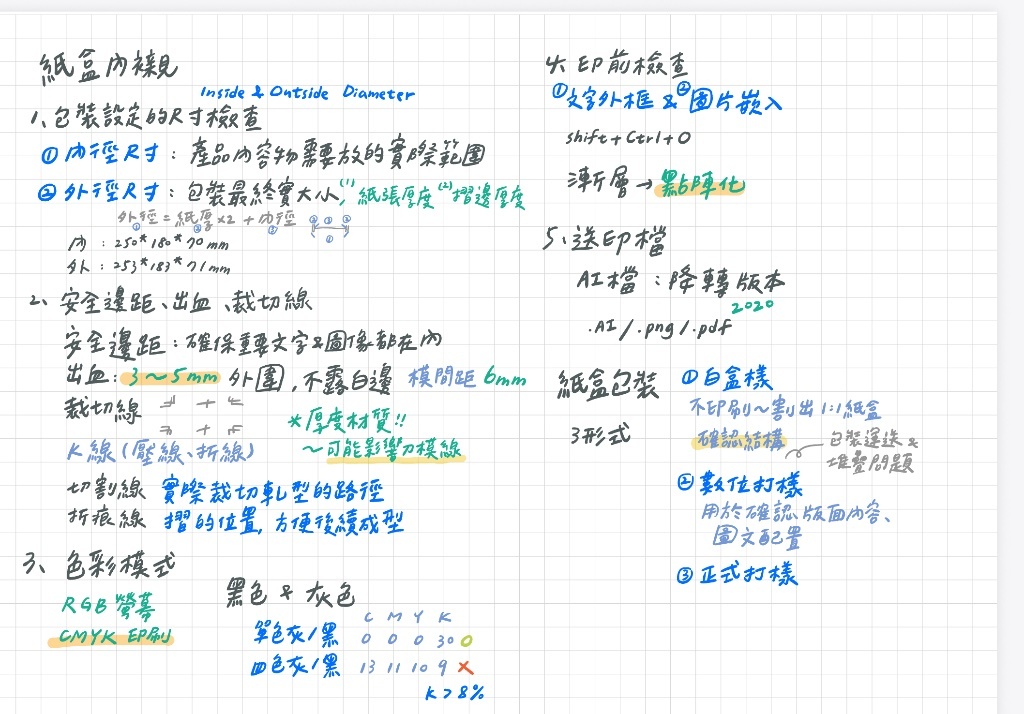 紙盒內襯
Inside & Outside Diameter
1、包裝設定的尺寸檢查
① 內徑尺寸：產品內容物需要放的實際範圍
② 外徑尺寸：包裝最終實大小, (1)紙張厚度 (2)摺邊厚度
外徑 = 紙厚×2 + 內徑 ② ③ ②
① ② ③ ①
內：250*180*70mm
外：253*183*71mm
2、安全邊距、出血、裁切線
安全邊距：確保重要文字&圖像都在內
出血：3～5mm 外圍，不露白邊 模間距 6mm
裁切線
*厚度材質!!
K線(壓線、折線) ～可能影響刀模線
切割線 實際裁切軋型的路徑
折痕線 摺的位置，方便後續成型
3、色彩模式
RGB 螢幕
CMYK 印刷
黑色 & 灰色
C M Y K
單色灰/黑 0 0 0 30 O
四色灰/黑 13 11 10 9 X
K>8%
4、印前檢查
①文字外框 & ②圖片嵌入
shift+Ctrl+O
漸層→
5、送印檔
AI檔：降轉版本
2020
.AI/.png/.pdf
紙盒包裝
3形式
① 白盒樣
不印刷～割出1:1紙盒
確認結構 包裝運送 &
堆疊問題
② 數位打樣
用於確認版面內容、
圖文配置
③ 正式打樣